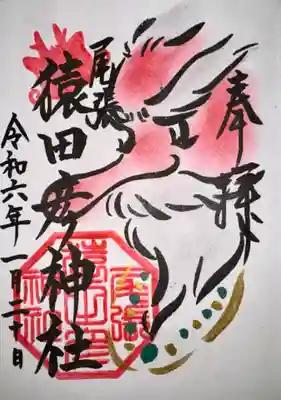 奉拝
尾張
猿田彦神社
令和六年一月二十日